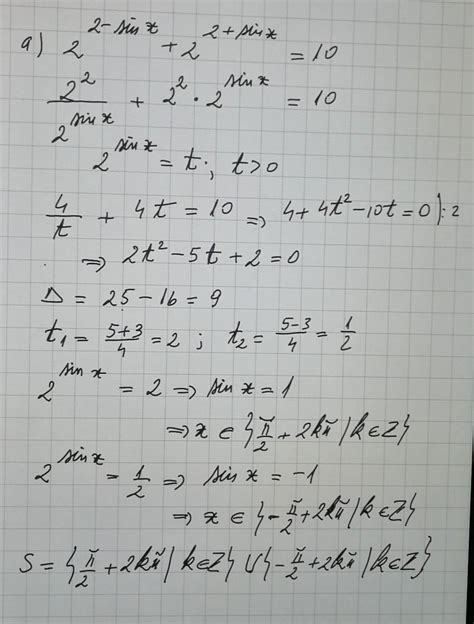 a) 2^(2-sin x) + 2^(2+sin x) = 10
2^2/2^(sin x) + 2^2 · 2^(sin x) = 10
2^(sin x) = t; t>0
4/t + 4t = 10 => 4+4t^2-10t=0 |:2
=> 2t^2-5t+2=0
Δ = 25-16=9
t_1 = (5+3)/4 = 2 ; t_2 = (5-3)/4 = 1/2
2^(sin x) = 2 => sin x = 1
=> x ∈ {π/2 + 2kπ | k∈Z}
2^(sin x) = 1/2 => sin x = -1
=> x ∈ {-π/2 + 2kπ | k∈Z}
S = {π/2 + 2kπ | k∈Z} ∪ {-π/2 + 2kπ | k∈Z}